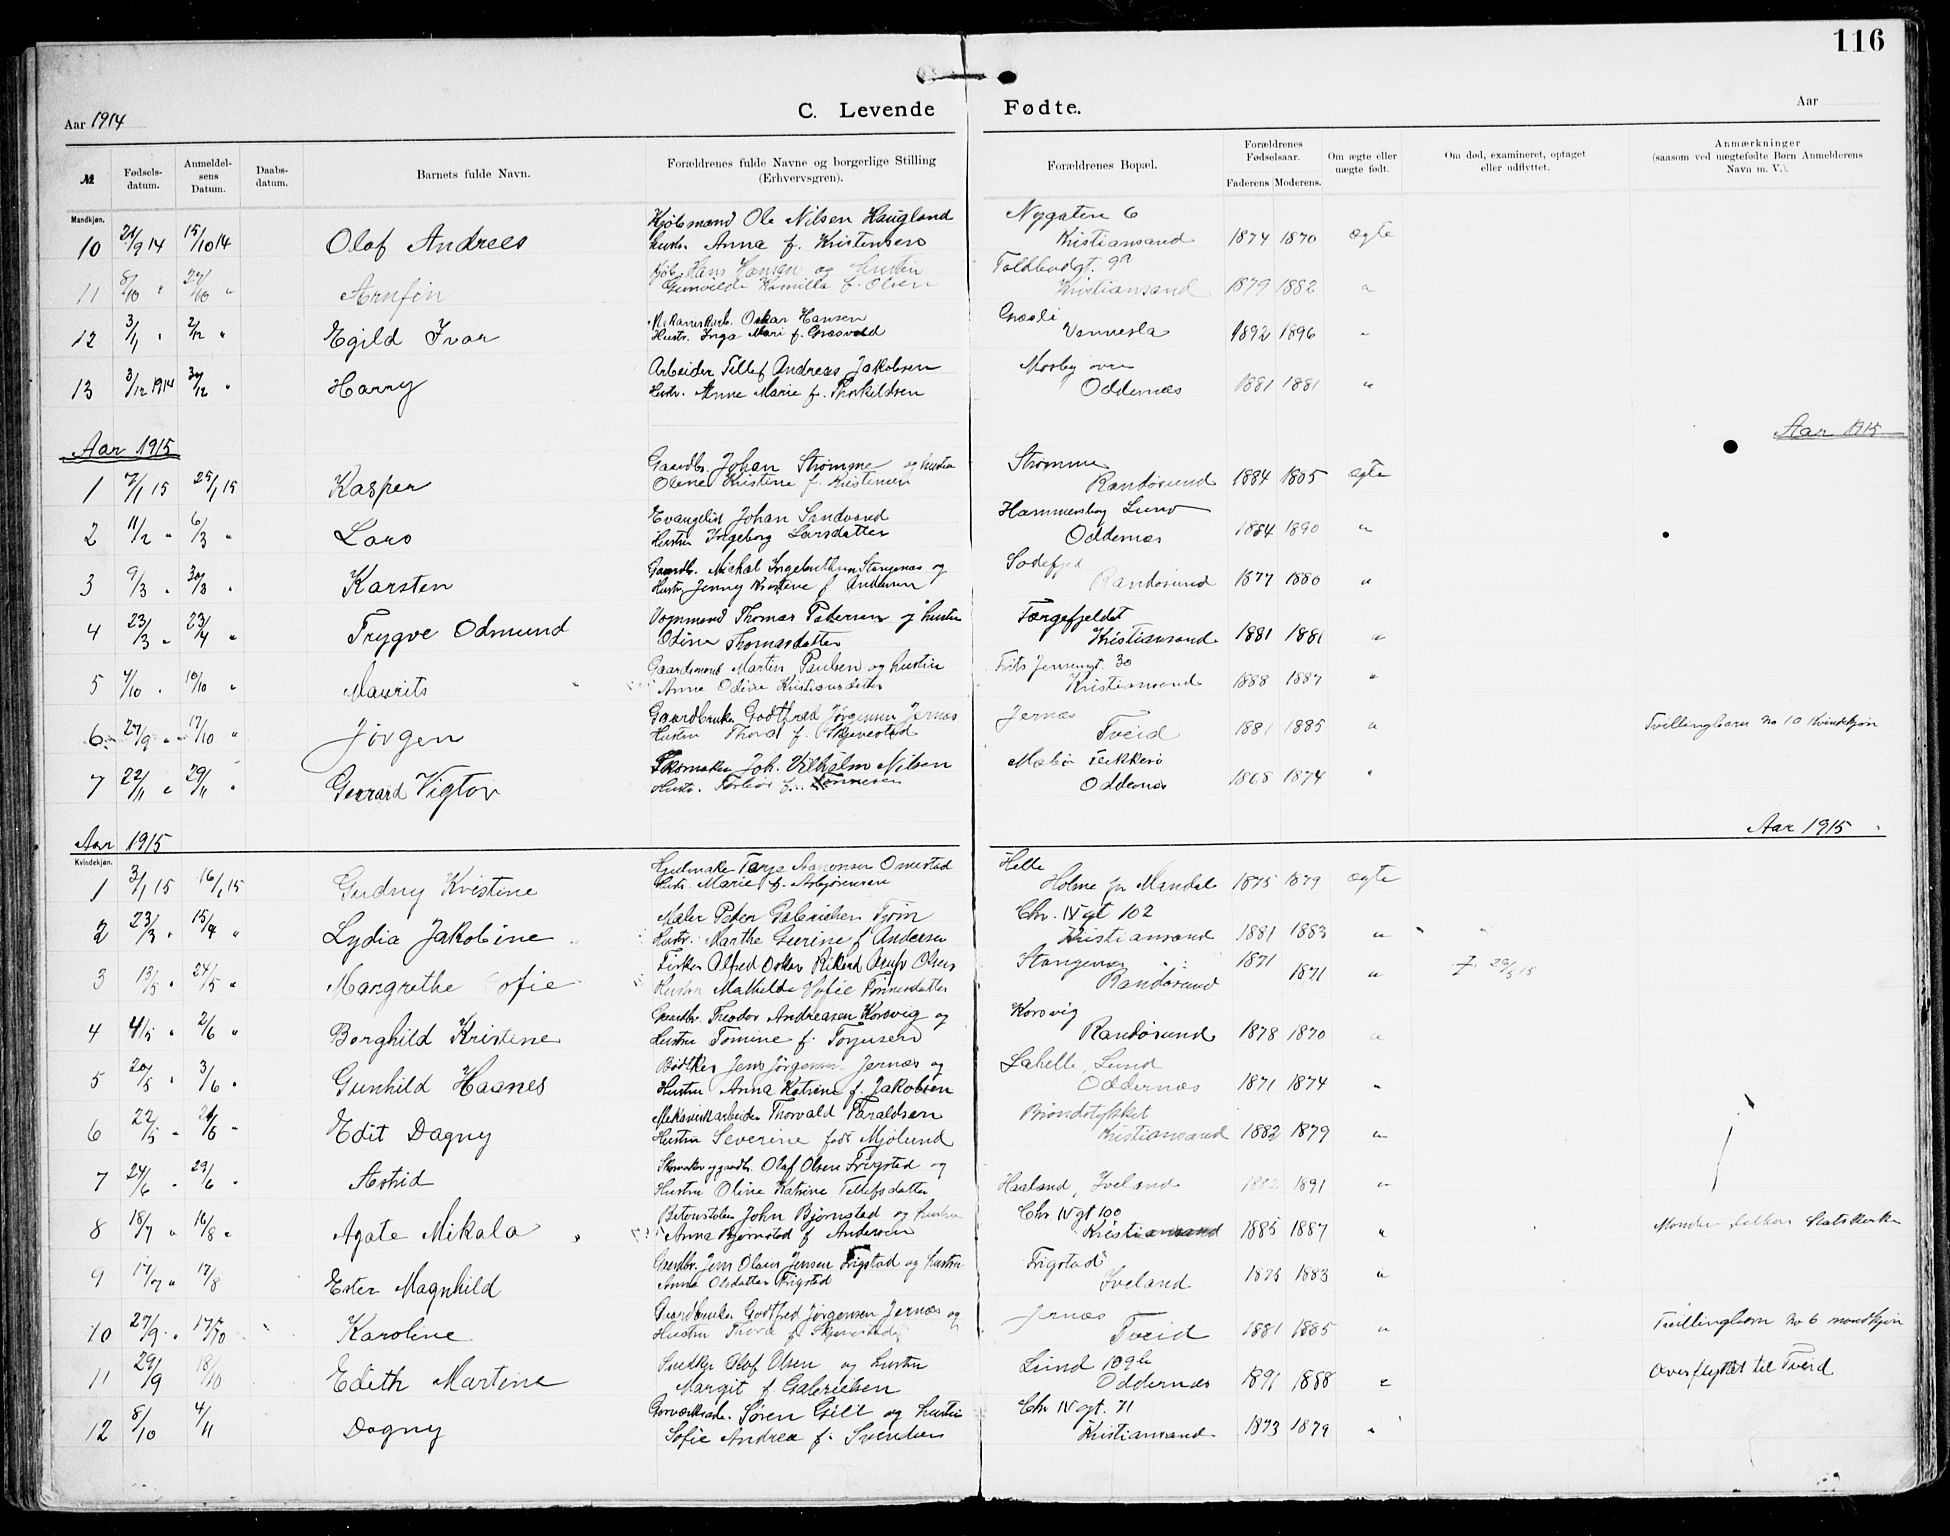 116
Aar 1914
C. Levende Fødte.
Aar
№
Fødsels-datum.
Anmeldel-sens Datum.
Daabs-datum.
Barnets fulde Navn.
Forældrenes fulde Navne og borgerlige Stilling (Erhvervsgren).
Forældrenes Bopæl.
Forældrenes Fødselsaar.
Faderens. Moderens.
Om ægte eller uægte født.
Om død, examineret, optaget eller udflyttet.
Anmærkninger (saasom ved uægtefødte Børn Anmelderens Navn m. V.).
Mandkjøn.
10 21/9 14 15/10 14 Olaf Andreas Kjøbmand Ole Nilsen Haugland Nygaten 6
Hustr. Anna f. Kristensen Kristiansand 1874 1870 ægte
11 8/10 " 24/10 " Arnfin Hans Hansen og hustru Toldbodgt. 9a
Gunvilda Kamilla f. Olsen Kristiansand 1879 1882 "
12 3/11 " 2/12 " Egild Ivar Oskar Hansen Græsli
Hustr. Inga Mari f. Græsvold Vennesla 1892 1896 "
13 3/12 1914 30/12 " Harry Arbeider Tellef Andreas Jakobsen Mosby øvre
Hustr. Anne Marie f. Thorkeldsen Oddernæs 1881 1881 "
Aar 1915 Aar 1915
1 7/1 15 25/1 15 Kasper Gaardbr. Johan Strømme og hustru Strømme
Olene Kristine f. Kristensen Randøsund 1884 1885 ægte
2 11/2 " 6/3 " Lars Evangelist Johan Sandvand Hammersborg Lund
Hustru Ingeborg Larsdatter Oddernæs 1884 1890 "
3 9/3 " 30/3 " Karsten Gaardbr. Michal Ingebrethsen Stangenæs og
Hustr. Jenny Kristine f. Andersen Randøsund 1877 1880 "
4 23/3 " 23/4 " Trygve Odmund Vognmand Thomas Pedersen og hustru Færgefjeldet
Odine Thomasdatter Kristiansand 1881 1881 "
5 4/10 " 10/10 " Maurits Gaardsmand Martin Paulsen og hustru Frits Jensensgt. 30
Anne Odine Kristiansdatter Kristiansand 1888 1887 "
6 27/9 " 17/10 " Jørgen Gaardbruker Godtfred Jørgensen Jernæs Jernæs Tvillingbarn No 10 Kvindekjøn
Hustru Thora f. Skjevestad Tveid 1881 1885 "
7 22/11 " 29/11 " Gerrard Vigtor Skomaker Joh. Vilhelm Nilsen Mæbø Flekkerø
Hustr. Torbjør f. Tønnesen Oddernæs 1868 1874 "
Aar 1915 Aar 1915
Kvindekjøn.
1 3/1 15 16/1 15 Gudny Kristine Hjulmaker Tarje Aanonsen Omestad Helle
Hustr. Marie f. Asbjørensen Holme pr Mandal 1875 1879 ægte
2 23/3 " 15/4 " Lydia Jakobine Maler Peder Gabrielsen Tjøm Chr. IV gt 102
Hustr. Marthe Geerine f. Andersen Kristiansand 1881 1883 "
3 13/5 " 24/5 " Margrethe Sofie Fisker Alfred Oskar Rikard Olsen Stangenæs 1871
Hustru Mathilde Sofie Tønnesdatter Randøsund 1871 "
4 4/5 " 2/6 " Borghild Kristine Gaardbr. Theodor Andreasen Korsvig og Korsvig
Hustru Tomine f. Torjusen Randøsund 1878 1870 "
5 20/5 " 3/6 " Gunhild Haanes Bødtker Jens Jørgensen Jernæs og Lahelle, Lund
Hustru Anna Katrine f. Jakobsen Oddernæs 1871 1874 "
6 22/5 " Edit Dagny Mekaniskarbeider Thorvald Taraldsen
Hustru Severine født Mjølund Kristiansand 1882 1879 "
7 24/6 " 29/6 " Astrid Skomaker og gaardbr. Olaf Olsen Frigstad og
Hustru Oline Katrine Tellefsdatter Haaland, Iveland 1882 1891 "
8 18/7 " 16/8 " Agate Mikala Betonstøber John Bjørnstad og hustru Chr. IV gt 100
Anna Bjørnstad f. Andersen Kristiansand 1885 1887 "
9 17/7 " 17/8 Ester Magnhild Gaardbr. Jens Olaus Jensen Frigstad og hustru Frigstad
Anna Olsdatter Frigstad Iveland 1875 1883 "
10 27/9 " 17/10 Karoline Gaardbruker Godtfred Jørgensen Jernæs og Jernæs Tvillingbarn No 6 mandkjøn
Hustru Thora f. Skjevestad Tveid 1881 1885 "
11 29/9 18/10 Edith Martine Snedker Olaf Olsen og hustru Lund 109 b Overflyttet til Tveid
Margit f. Gabrielsen Oddernæs 1891 1888 "
12 8/10 4/11 Dagny Søren Gill og hustru Chr IV gt. 71
Sofie Andrea f. Svendsen Kristiansand 1873 1879 "